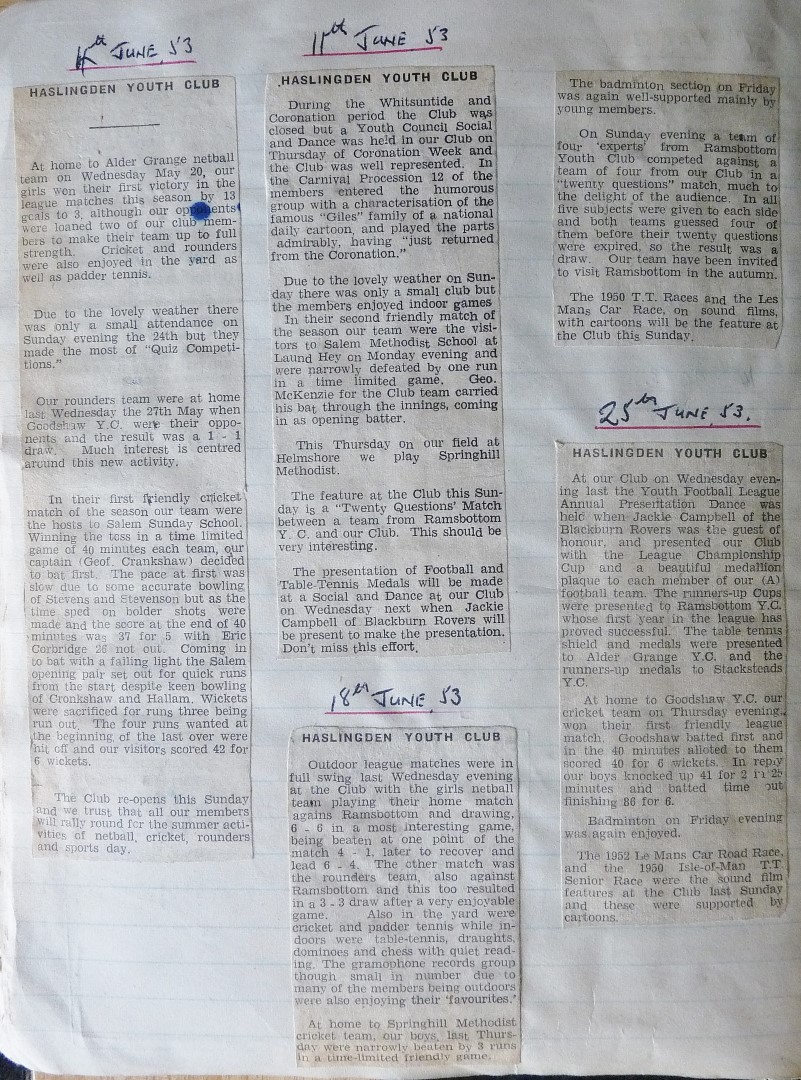 4th JUNE 53
HASLINGDEN YOUTH CLUB
At home to Alder Grange netball
team on Wednesday May 20, our
girls won their first victory in the
league matches this season by 13
goals to 3, although our opponents
were loaned two of our club mem-
bers to make their team up to full
strength. Cricket and rounders
were also enjoyed in the yard as
well as padder tennis.
Due to the lovely weather there
was only a small attendance on
Sunday evening the 24th but they
made the most of "Quiz Competi-
tions."
Our rounders team were at home
last Wednesday the 27th May when
Goodshaw Y.C. were their oppo-
nents and the result was a 1 - 1
draw. Much interest is centred
around this new activity.
In their first friendly cricket
match of the season our team were
the hosts to Salem Sunday School.
Winning the toss in a time limited
game of 40 minutes each team, our
captain (Geof. Crankshaw) decided
to bat first. The pace at first was
slow due to some accurate bowling
of Stevens and Stevenson but as the
time sped on bolder shots were
made and the score at the end of 40
minutes was 37 for 5 with Eric
Corbridge 26 not out. Coming in
to bat with a failing light the Salem
opening pair set out for quick runs
from the start despite keen bowling
of Cronkshaw and Hallam. Wickets
were sacrificed for runs three being
run out. The four runs wanted at
the beginning of the last over were
hit off and our visitors scored 42 for
6 wickets.
The Club re-opens this Sunday
and we trust that all our members
will rally round for the summer acti-
vities of netball, cricket, rounders
and sports day.
11th JUNE 53
HASLINGDEN YOUTH CLUB
During the Whitsuntide and
Coronation period the Club was
closed but a Youth Council Social
and Dance was held in our Club on
Thursday of Coronation Week and
the Club was well represented. In
the Carnival Procession 12 of the
members entered the humorous
group with a characterisation of the
famous "Giles" family of a national
daily cartoon, and played the parts
admirably, having "just returned
from the Coronation."
Due to the lovely weather on Sun-
day there was only a small club but
the members enjoyed indoor games
In their second friendly match of
the season our team were the visi-
tors to Salem Methodist School at
Laund Hey on Monday evening and
were narrowly defeated by one run
in a time limited game. Geo.
McKenzie for the Club team carried
his bat through the innings, coming
in as opening batter.
This Thursday on our field at
Helmshore we play Springhill
Methodist.
The feature at the Club this Sun-
day is a "Twenty Questions' Match
between a team from Ramsbottom
Y. C. and our Club. This should be
very interesting.
The presentation of Football and
Table-Tennis Medals will be made
at a Social and Dance at our Club
on Wednesday next when Jackie
Campbell of Blackburn Rovers will
be present to make the presentation.
Don't miss this effort.
18th JUNE 53
HASLINGDEN YOUTH CLUB
Outdoor league matches were in
full swing last Wednesday evening
at the Club with the girls netball
team playing their home match
agains Ramsbottom and drawing,
6 - 6 in a most interesting game,
being beaten at one point of the
match 4 - 1, later to recover and
lead 6 - 4. The other match was
the rounders team, also against
Ramsbottom and this too resulted
in a 3 - 3 draw after a very enjoyable
game. Also in the yard were
cricket and padder tennis while in-
doors were table-tennis, draughts,
dominoes and chess with quiet read-
ing. The gramophone records group
though small in number due to
many of the members being outdoors
were also enjoying their 'favourites.'
At home to Springhill Methodist
cricket team, our boys, last Thurs-
day were narrowly beaten by 3 runs
in a time-limited friendly game.
The badminton section on Friday
was again well-supported mainly by
young members.
On Sunday evening a team of
four 'experts' from Ramsbottom
Youth Club competed against a
team of four from our Club in a
"twenty questions" match, much to
the delight of the audience. In all
five subjects were given to each side
and both teams guessed four of
them before their twenty questions
were expired, so the result was a
draw. Our team have been invited
to visit Ramsbottom in the autumn.
The 1950 T.T. Races and the Les
Mans Car Race, on sound films,
with cartoons will be the feature at
the Club this Sunday.
25th JUNE 53.
HASLINGDEN YOUTH CLUB
At our Club on Wednesday even-
ing last the Youth Football League
Annual Presentation Dance was
held when Jackie Campbell of the
Blackburn Rovers was the guest of
honour, and presented our Club
with the League Championship
Cup and a beautiful medallion
plaque to each member of our (A)
football team. The runners-up Cups
were presented to Ramsbottom Y.C.
whose first year in the league has
proved successful. The table tennis
shield and medals were presented
to Alder Grange Y.C. and the
runners-up medals to Stacksteads
Y.C.
At home to Goodshaw Y.C. our
cricket team on Thursday evening,
won their first friendly league
match. Goodshaw batted first and
in the 40 minutes alloted to them
scored 40 for 6 wickets. In reply
our boys knocked up 41 for 2 in 25
minutes and batted time out
finishing 86 for 6.
Badminton on Friday evening
was again enjoyed.
The 1952 Le Mans Car Road Race,
and the 1950 Isle-of-Man T.T.
Senior Race were the sound film
features at the Club last Sunday
and these were supported by
cartoons.